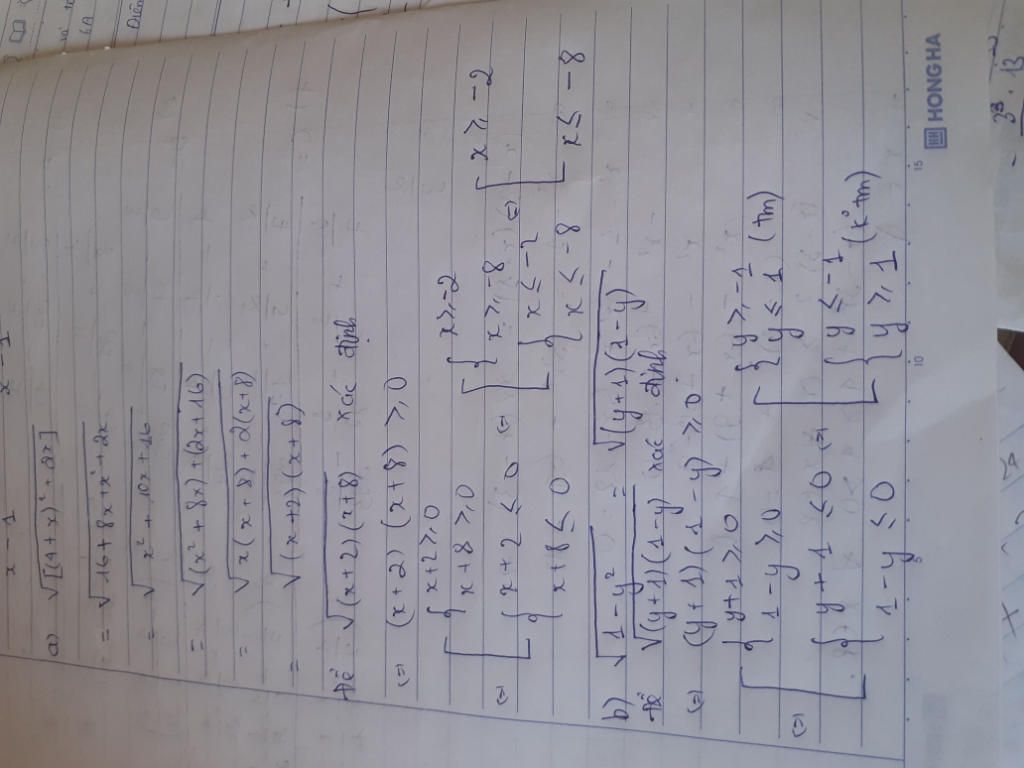 x - 1 x - 1
a) √[(4+x)² + 2x]
= √16 + 8x + x² + 2x
= √x² + 10x + 16
= √(x² + 8x) + (2x + 16)
= √x(x + 8) + 2(x + 8)
= √(x + 2)(x + 8)
Để √(x + 2)(x + 8) xác định
(=) (x + 2)(x + 8) ≥ 0
(=) [ { x + 2 ≥ 0
x + 8 ≥ 0
{ x + 2 ≤ 0
x + 8 ≤ 0
(=) [ { x ≥ -2
x ≥ -8
{ x ≤ -2
x ≤ -8
(=) [ x ≥ -2
x ≤ -8
b) √1 - y² = √(y + 1)(1 - y)
Để √(y + 1)(1 - y) xác định
(=) (y + 1)(1 - y) ≥ 0
(=) [ { y + 1 ≥ 0
1 - y ≥ 0
{ y + 1 ≤ 0
1 - y ≤ 0
(=) [ { y ≥ -1
y ≤ 1 (tm)
{ y ≤ -1
y ≥ 1 (k° tm)
5 10 15
HONG HA